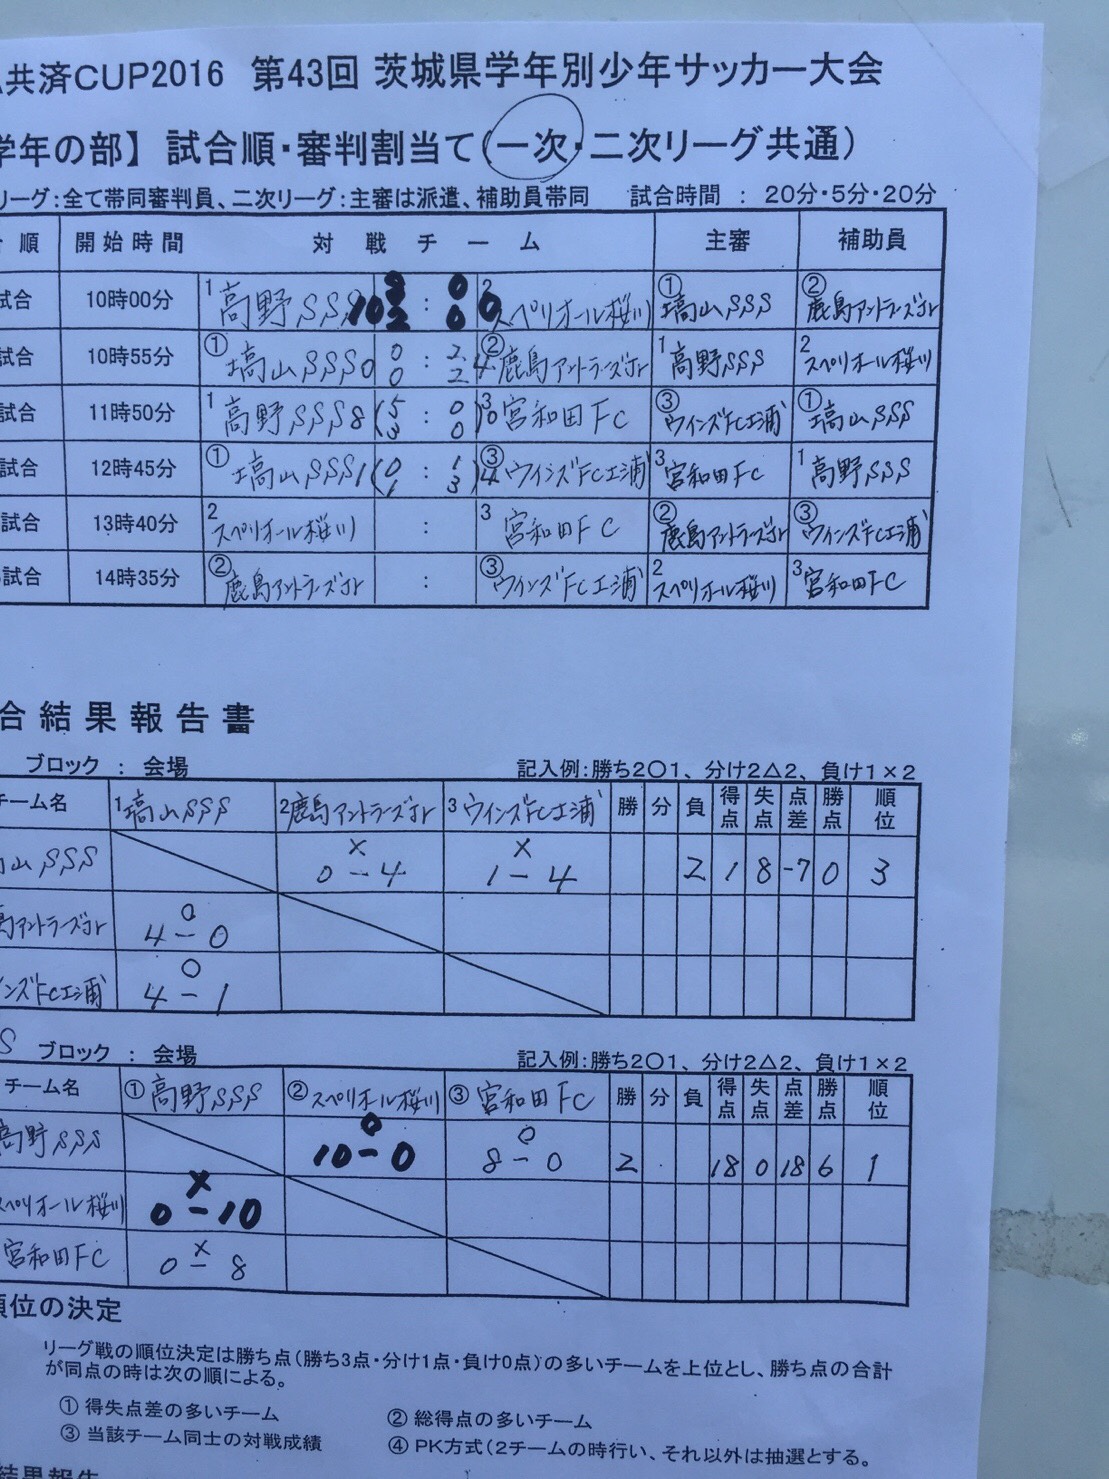 共済CUP2016 第43回 茨城県学年別少年サッカー大会
学年の部】 試合順・審判割当て(一次・二次リーグ共通)
リーグ:全て帯同審判員、二次リーグ:主審は派遣、補助員帯同 試合時間 : 20分・5分・20分
順 開始時間 対戦チーム 主審 補助員
試合 10時00分 1 高野SSS 10 2 : 0 0 2 スペリオール桜川 ①塙山SSS ②鹿島アントラーズJr
試合 10時55分 ①塙山SSS 0 0 : 2 0 2 4 ②鹿島アントラーズJr 1 高野SSS 2 スペリオール桜川
試合 11時50分 1 高野SSS 8 (5 : 0 3 0) 0 3 宮和田FC ③ウインズFC土浦 ①塙山SSS
試合 12時45分 ①塙山SSS 1 (0 : 1 1 3) 4 ③ウインズFC土浦 3 宮和田FC 1 高野SSS
試合 13時40分 2 スペリオール桜川 : 3 宮和田FC ②鹿島アントラーズJr ③ウインズFC土浦
試合 14時35分 ②鹿島アントラーズJr : ③ウインズFC土浦 2 スペリオール桜川 3 宮和田FC
合結果報告書
ブロック : 会場 記入例:勝ち2○1、分け2△2、負け1×2
チーム名 1 塙山SSS 2 鹿島アントラーズJr 3 ウインズFC土浦 勝 分 負 得点 失点 点差 勝点 順位
山SSS × 0-4 × 1-4 2 1 8 -7 0 3
島アントラーズJr ○ 4-0
インズFC土浦 ○ 4-1
S ブロック : 会場 記入例:勝ち2○1、分け2△2、負け1×2
チーム名 ①高野SSS ②スペリオール桜川 ③宮和田FC 勝 分 負 得点 失点 点差 勝点 順位
高野SSS ○ 10-0 ○ 8-0 2 18 0 18 6 1
スペリオール桜川 × 0-10
宮和田FC × 0-8
順位の決定
リーグ戦の順位決定は勝ち点(勝ち3点・分け1点・負け0点)の多いチームを上位とし、勝ち点の合計
が同点の時は次の順による。
① 得失点差の多いチーム ② 総得点の多いチーム
③ 当該チーム同士の対戦成績 ④ PK方式(2チームの時行い、それ以外は抽選とする。
結果報告